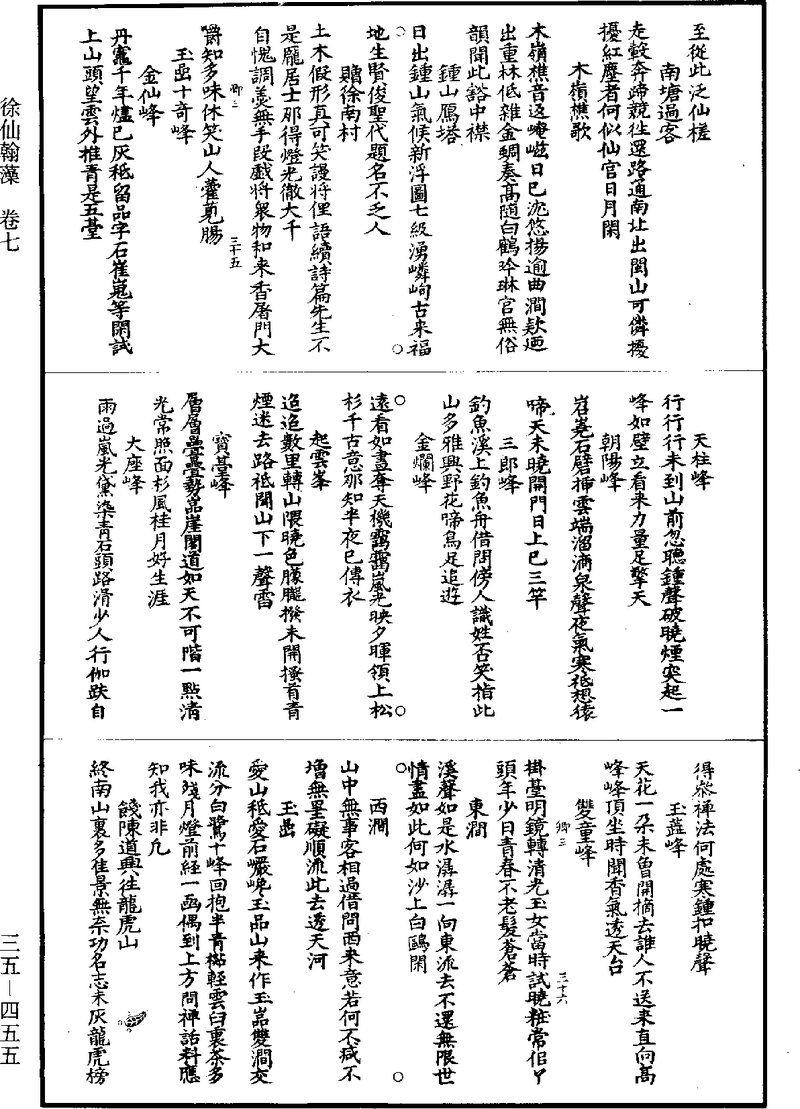 至從此泛仙槎
南塘過客
走轂奔蹄競徃還路通南北出閩山可憐擾
擾紅塵者何似仙官日月閑
木嶺樵歌
木嶺樵音返崦嵫日已沉悠揚逾曲澗欵迺
出重林低雜金蜩奏髙隨白鶴吟琳官無俗
韻聞此豁中襟
鍾山鴈塔
日出鍾山氣候新浮圖七級湧嶙峋古来福
地生賢俊聖代題名不乏人
贈徐南村
土木假形真可笑謾將俚語續詩篇先生不
是龐居士那得燈光徹大千
自愧調羹無手段戲將衆物和来香屠門大
嚼知多味休笑山人藿莧腸
卿三
三十五
玉嵒十奇峰
金仙峰
丹竈千年燼已灰秪留品字石崔嵬等閑試
上山頭望雲外推青是五臺
天柱峰
行行行未到山前忽聴鍾聲破曉煙突起一
峰如壁立看来力量足擎天
朝陽峰
岧嶤石劈揷雲端溜滴泉聲夜氣寒秪想猿
啼天未曉開門日上已三竿
三郎峰
釣魚溪上釣魚舟借問傍人識姓否笑指此
山多雅興野花啼鳥足追遊
金爛峰
遠看如畫奪天機靄靄嵐光映夕暉領上松
杉千古意那知半夜已傳衣
起雲峯
迢迢數里轉山隈曉色朦朧撥未開搔首青
煙迷去路秪聞山下一聲雷
寳臺峰
層層疊疊勢嵓崖閣道如天不可階一點清
光常照面杉風桂月好生涯
大座峰
雨過嵐光黛染青石頭路滑少人行伽趺自
得叅禪法何處寒鍾扣曉聲
玉蕋峰
天花一朶未曽開摘去誰人不送来直向髙
峰峰頂坐時聞香氣透天台
雙童峰
卿三
三十六
掛臺明鏡轉清光玉女當時試曉粧常侶丫
頭年少日青春不老髮蒼蒼
東澗
溪聲如是水潺潺一向東流去不還無限世
情盡如此何如沙上白鷗閑
西澗
山中無事客相過借問西来意若何不减不
増無罣礙順流此去透天河
玉嵒
愛山秪愛石巖巉玉品山来作玉嵓雙澗交
流分白鷺十峰回抱半青搊輕雲臼裏茶多
味淺月燈前経一函偶到上方問禅話料應
知我亦非凡
餞陳道興徃龍虎山
終南山裏多佳景無奈功名志未灰龍虎榜
徐仙翰藻　卷七
三五—四五五